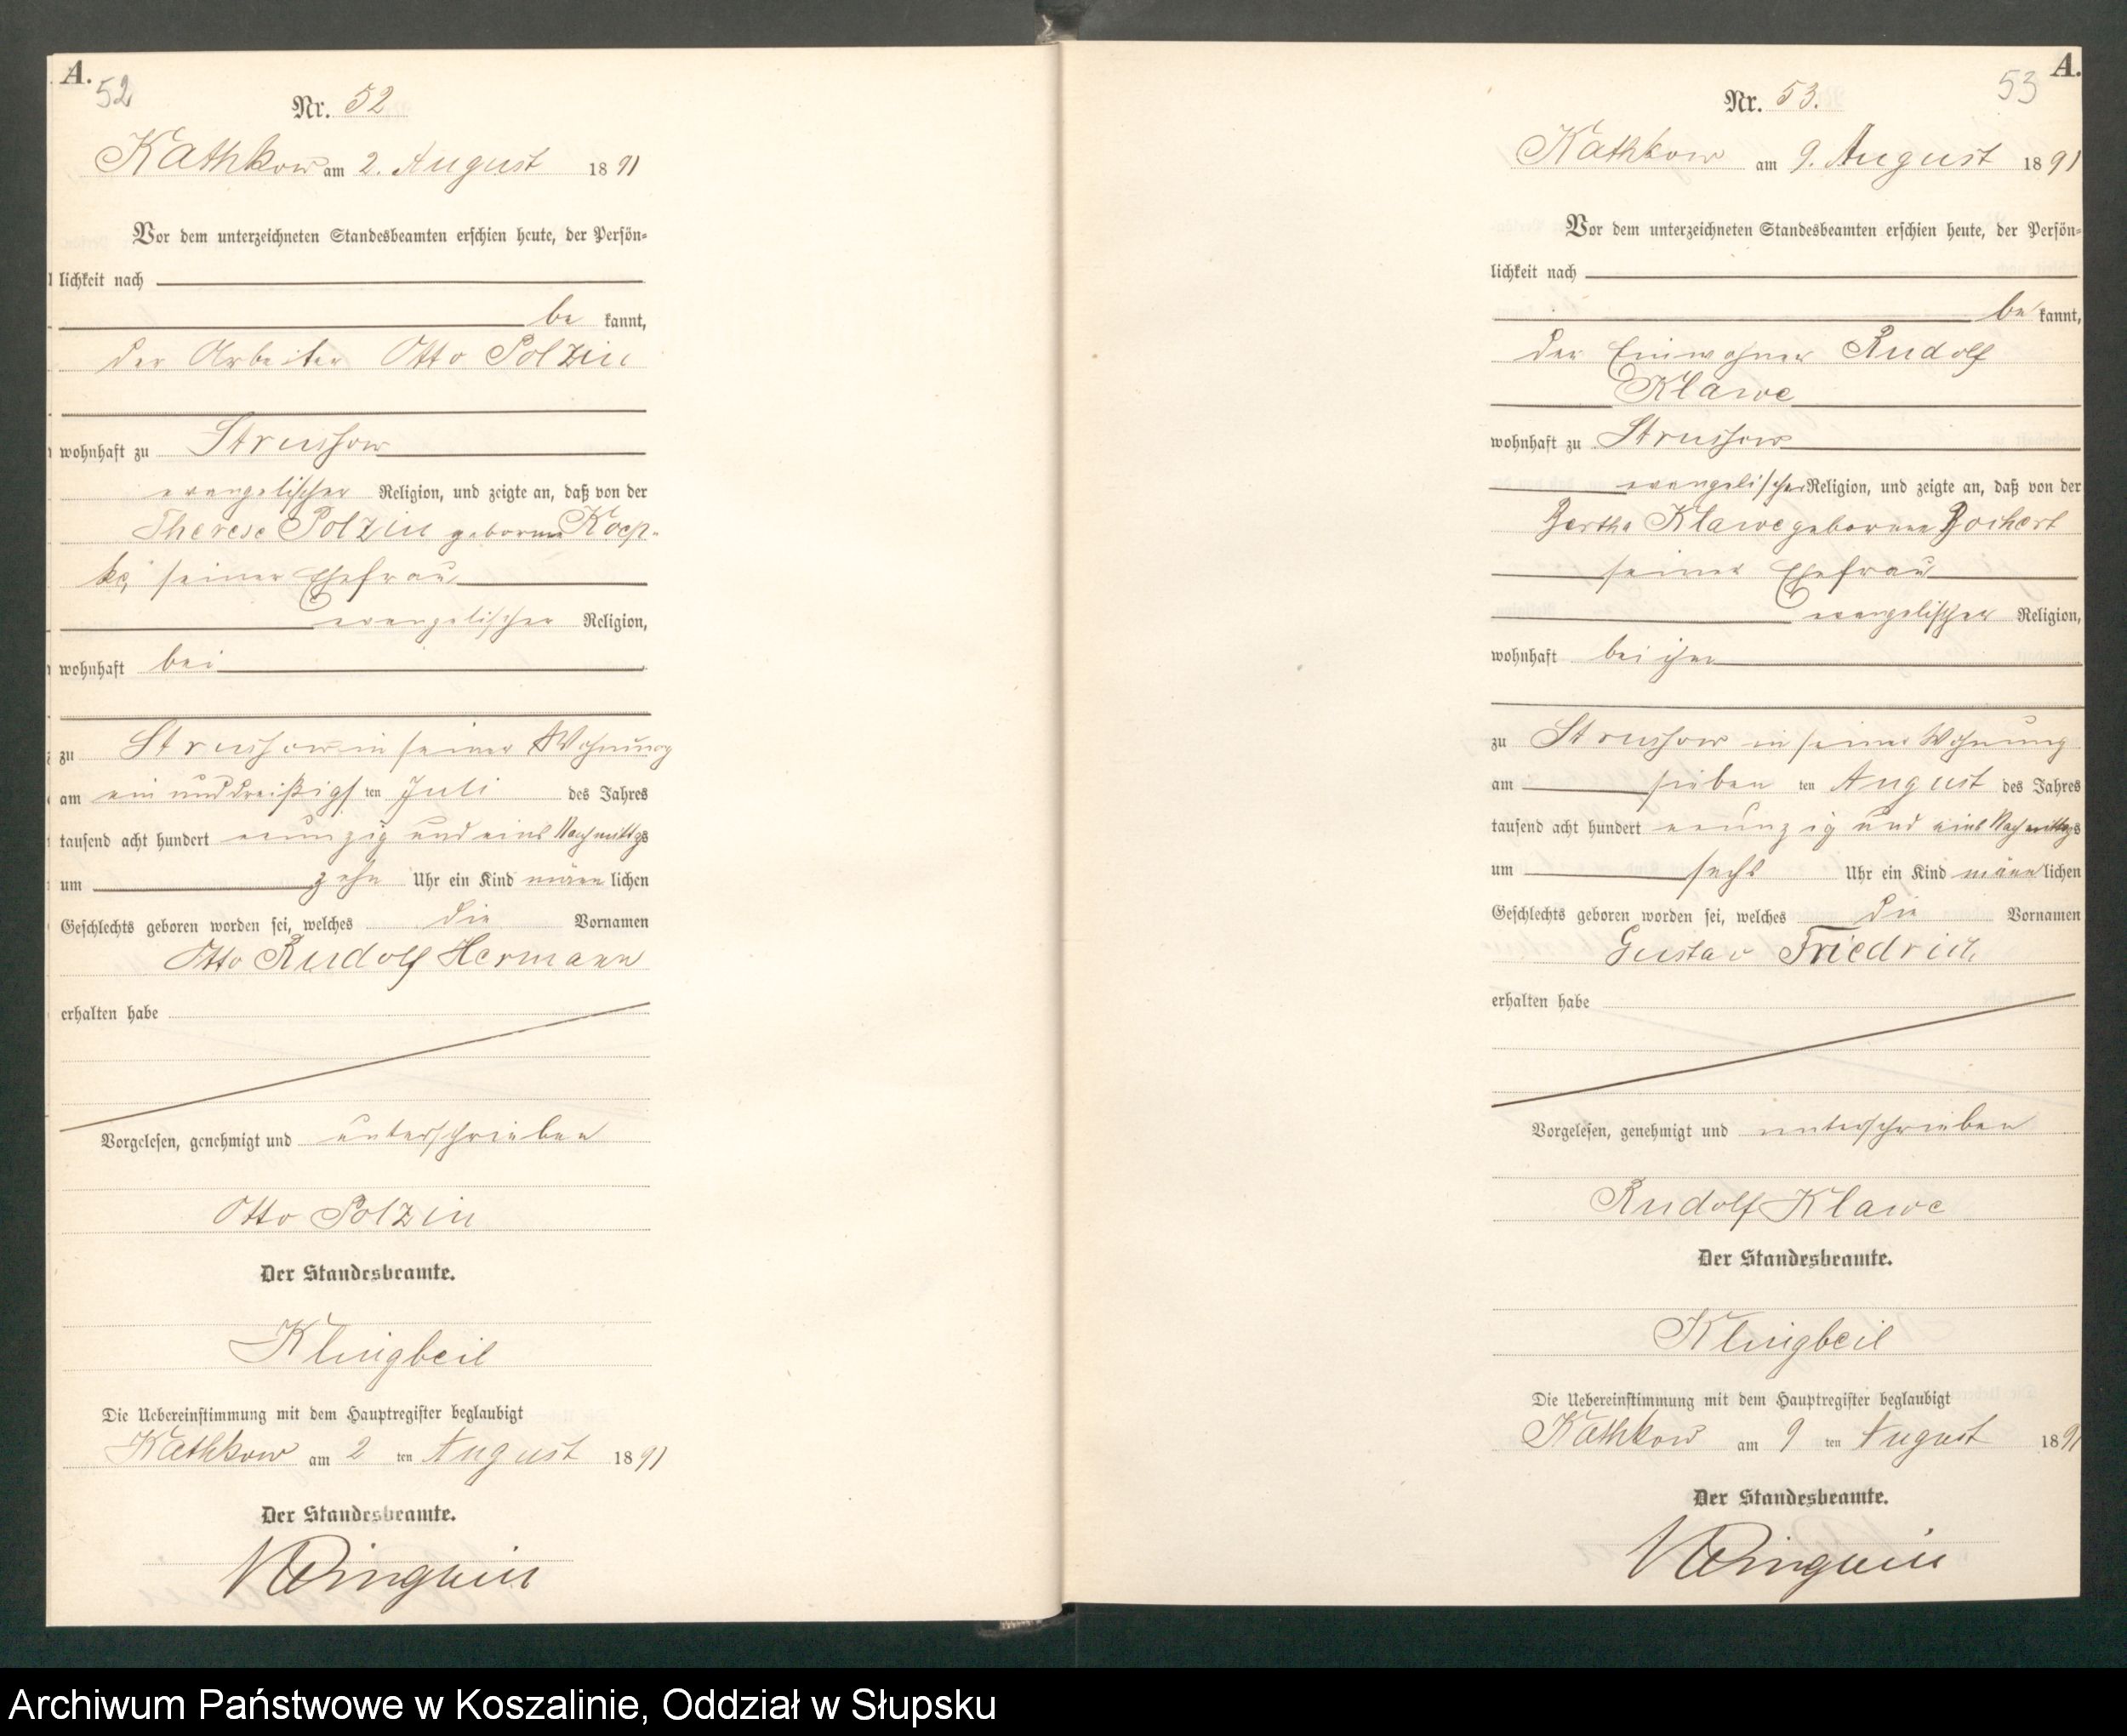 A.
52
Nr. 52
Kathkow am 2. August 1891
Vor dem unterzeichneten Standesbeamten erschien heute, der Persön-
lichkeit nach
be kannt,
der Arbeiter Otto Polzin
wohnhaft zu Strussow
evangelischer Religion, und zeigte an, daß von der
Therese Polzin geborene Koep-
ke, seiner Ehefrau
evangelischer Religion,
wohnhaft bei
zu Strussow in seiner Wohnung
am ein und dreißigs ten Juli des Jahres
tausend acht hundert neunzig und eins Nachmittags
um zehn Uhr ein Kind männ lichen
Geschlechts geboren worden sei, welches die Vornamen
Otto Rudolf Hermann
erhalten habe
Vorgelesen, genehmigt und unterschrieben
Otto Polzin
Der Standesbeamte.
Klingbeil
Die Uebereinstimmung mit dem Hauptregister beglaubigt
Kathkow am 2 ten August 1891
Der Standesbeamte.
A.
53
Nr. 53.
Kathkow am 9. August 1891
Vor dem unterzeichneten Standesbeamten erschien heute, der Persön-
lichkeit nach
be kannt,
der Einwohner Rudolf
Klawe
wohnhaft zu Strussow
evangelischer Religion, und zeigte an, daß von der
Bertha Klawe geborene Boihert
seiner Ehefrau
evangelischer Religion,
wohnhaft bei ihm
zu Strussow in seiner Wohnung
am sieben ten August des Jahres
tausend acht hundert neunzig und eins Nachmittags
um sechs Uhr ein Kind männ lichen
Geschlechts geboren worden sei, welches die Vornamen
Gustav Friedrich
erhalten habe
Vorgelesen, genehmigt und unterschrieben
Rudolf Klawe
Der Standesbeamte.
Klingbeil
Die Uebereinstimmung mit dem Hauptregister beglaubigt
Kathkow am 9 ten August 1891
Der Standesbeamte.
Archiwum Państwowe w Koszalinie, Oddział w Słupsku